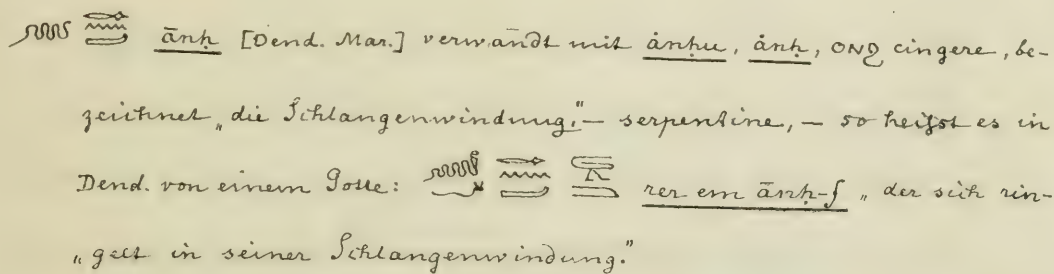 ānḥ [Dend. Mar.] verwandt mit ȧnḥu, ȧnḥ, ⲟⲛϩ cingere, be-
zeichnet „die Schlangenwindung." – serpentine, – so heißt es in
Dend. von einem Gotte: rer em ānḥ-f „der sich rin-
„gelt in seiner Schlangenwindung."